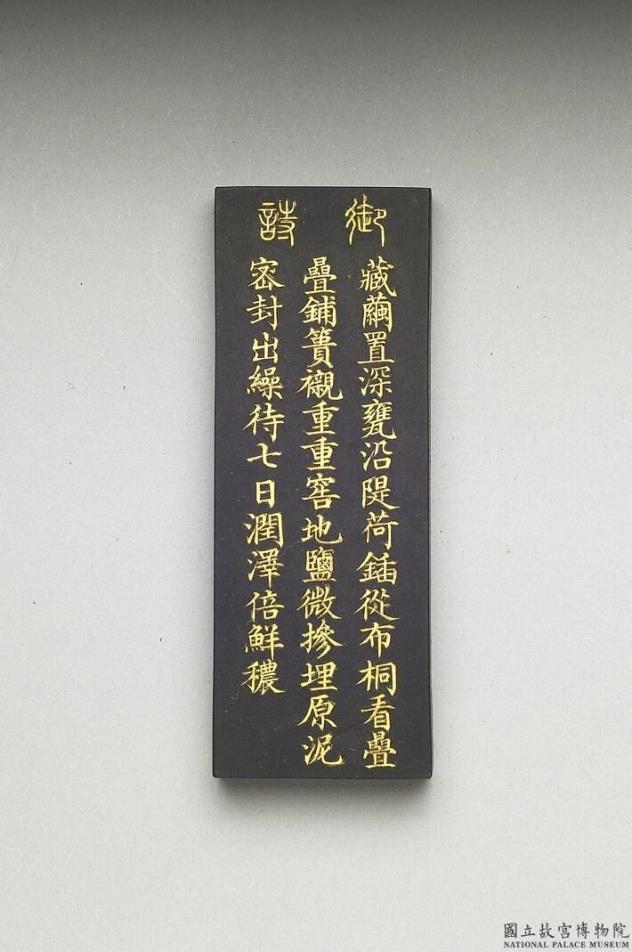 御詩
藏繭置深甕沿隄荷鍤從布桐看疊
疊鋪簀襯重重窖地鹽微摻埋原泥
密封出繰待七日潤澤倍鮮穠
國立故宮博物院
NATIONAL PALACE MUSEUM